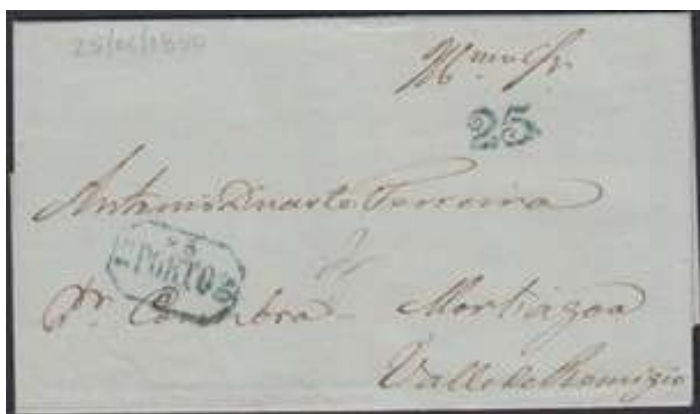 Illmo Sr.
25
Antonio Duarte Ferreira
PORTO
Pr. Coimbra Mortagoa
Valle de Remigio